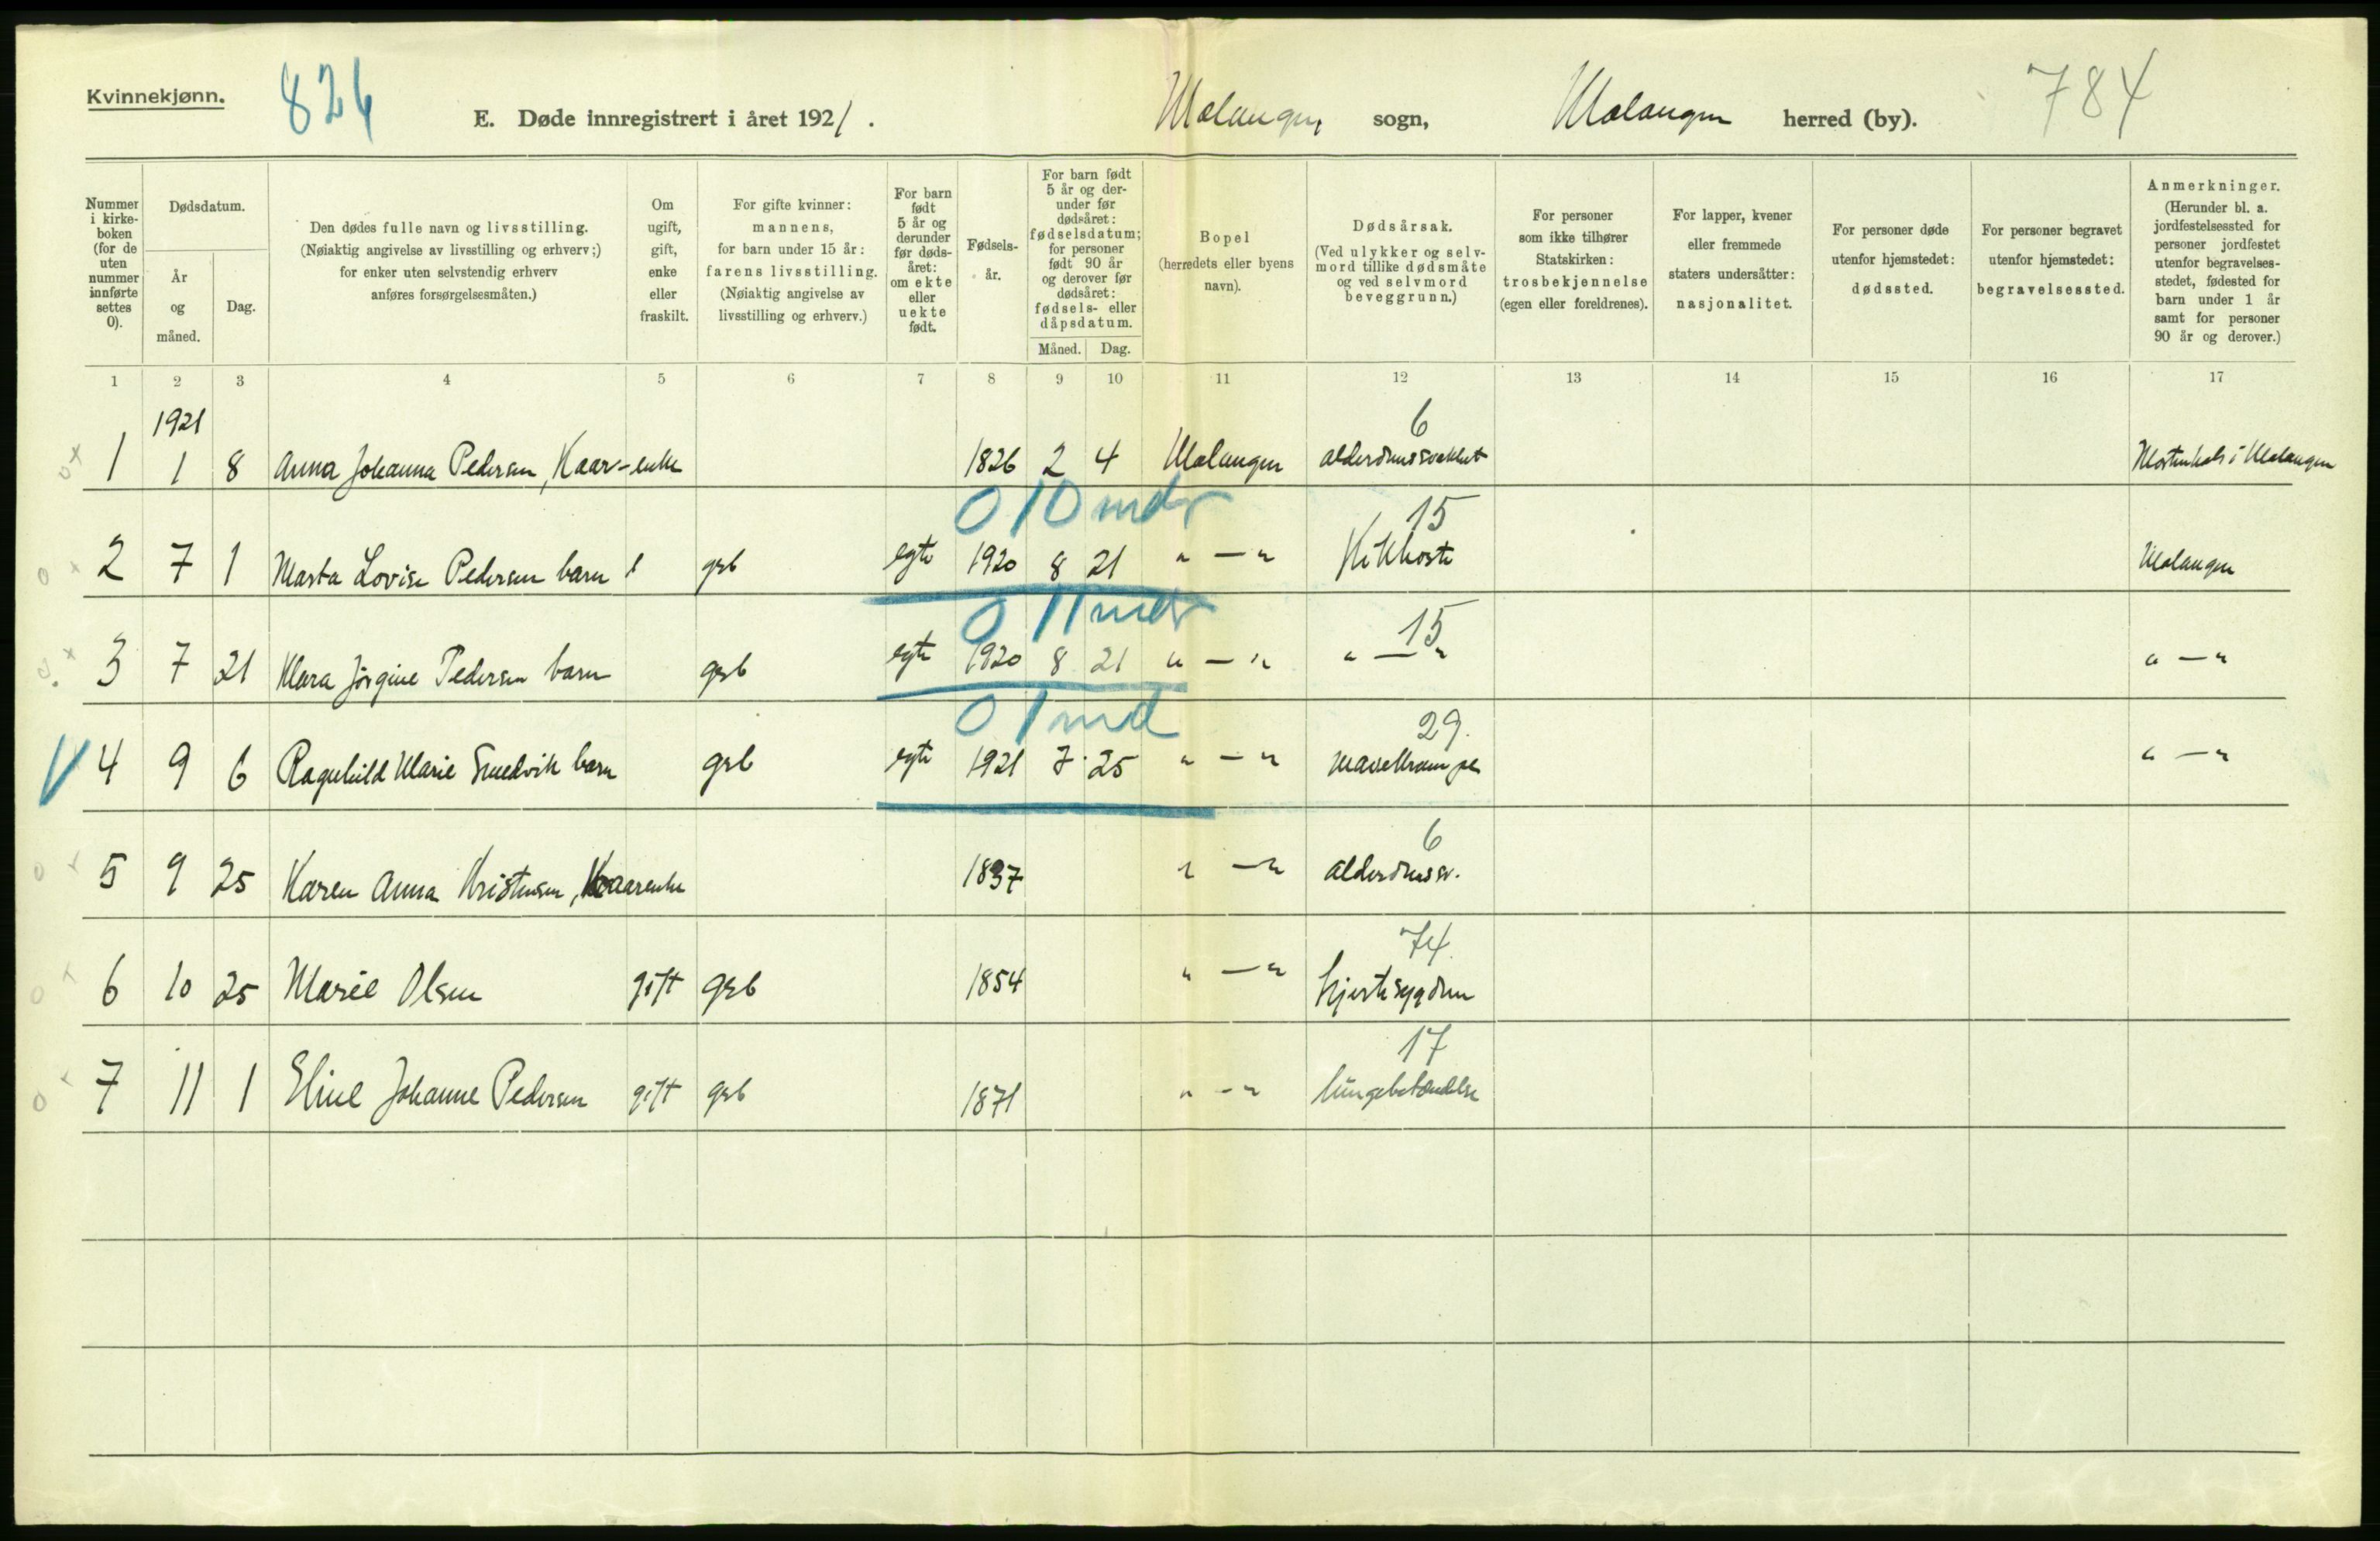 Kvinnekjønn.
826
E. Døde innregistrert i året 1921. Malangen sogn, Malangen herred (by).
784
Nummer i kirkeboken (for de uten nummer innførte settes 0).
Dødsdatum.
År og måned.
Dag.
Den dødes fulle navn og livsstilling.
(Nøiaktig angivelse av livsstilling og erhverv;)
for enker uten selvstendig erhverv
anføres forsørgelsesmåten.)
Om ugift, gift, enke eller fraskilt.
For gifte kvinner:
mannens,
for barn under 15 år:
farens livsstilling.
(Nøiaktig angivelse av
livsstilling og erhverv.)
For barn født 5 år og derunder før dødsåret: om ekte eller uekte født.
Fødselsår.
For barn født 5 år og derunder før dødsåret: fødselsdatum; for personer født 90 år og derover før dødsåret: fødsels- eller dåpsdatum.
Måned. Dag.
Bopel
(herredets eller byens
navn).
Dødsårsak.
(Ved ulykker og selvmord tillike dødsmåte
og ved selvmord
beveggrunn.)
For personer
som ikke tilhører
Statskirken:
trosbekjennelse
(egen eller foreldrenes).
For lapper, kvener
eller fremmede
staters undersåtter:
nasjonalitet.
For personer døde
utenfor hjemstedet:
dødssted.
For personer begravet
utenfor hjemstedet:
begravelsessted.
Anmerkninger.
(Herunder bl. a.
jordfestelsessted for
personer jordfestet
utenfor begravelsesstedet, fødested for
barn under 1 år
samt for personer
90 år og derover.)
1 2 3 4 5 6 7 8 9 10 11 12 13 14 15 16 17
1921
6
1 1 8 Anna Johanna Pedersen, Kaar-enke 1826 2 4 Malangen alderdomssvakhet Mortenhals i Malangen
0 10 mdr 15
2 7 1 Marta Lovise Pedersen barn grb egte 1920 8 21 " — " Kikhoste Malangen
0 11 mdr 15
3 7 21 Klara Jørgine Pedersen barn grb egte 1920 8 21 " — " " — " " — "
0 1 md 29.
4 9 6 Ragnhild Marie Smedvik barn grb egte 1921 7 25 " — " mavekrampe " — "
6
5 9 25 Karen Anna Kristensen, Kaarenke 1837 " — " alderdomssv.
74.
6 10 25 Marie Olsen gift grb 1854 " — " hjertesygdom
17
7 11 1 Eline Johanne Pedersen gift grb 1871 " — " lungebetændelse